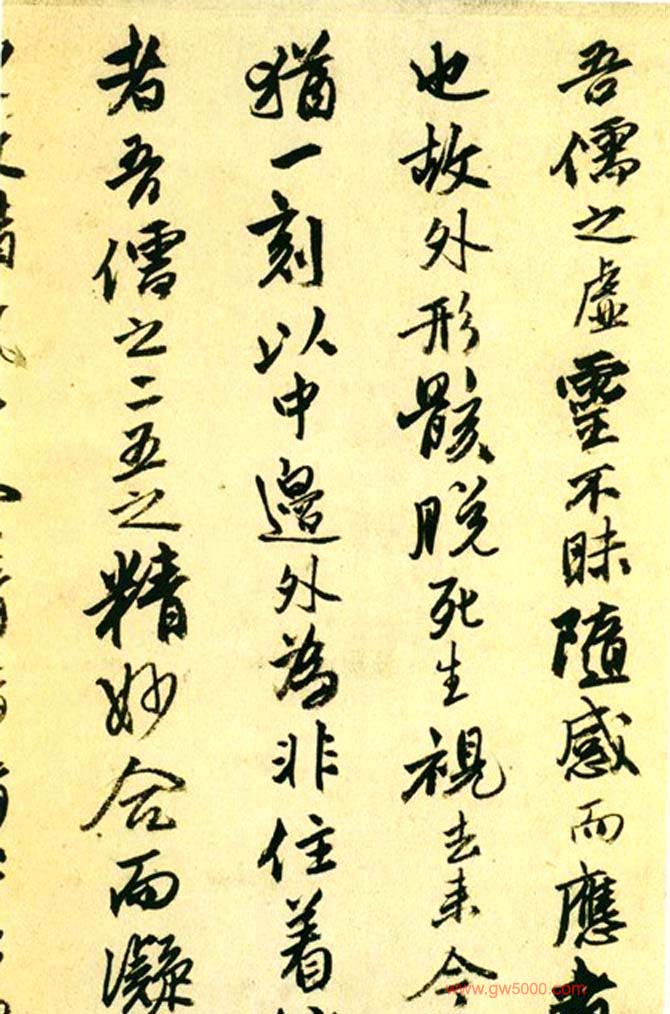 吾儒之虛靈不昧隨感而應者
也故外形骸脫死生視去来今
猶一刻以中邊外為非住着
者吾儒之二五之精妙合而凝
www.gw5000.com